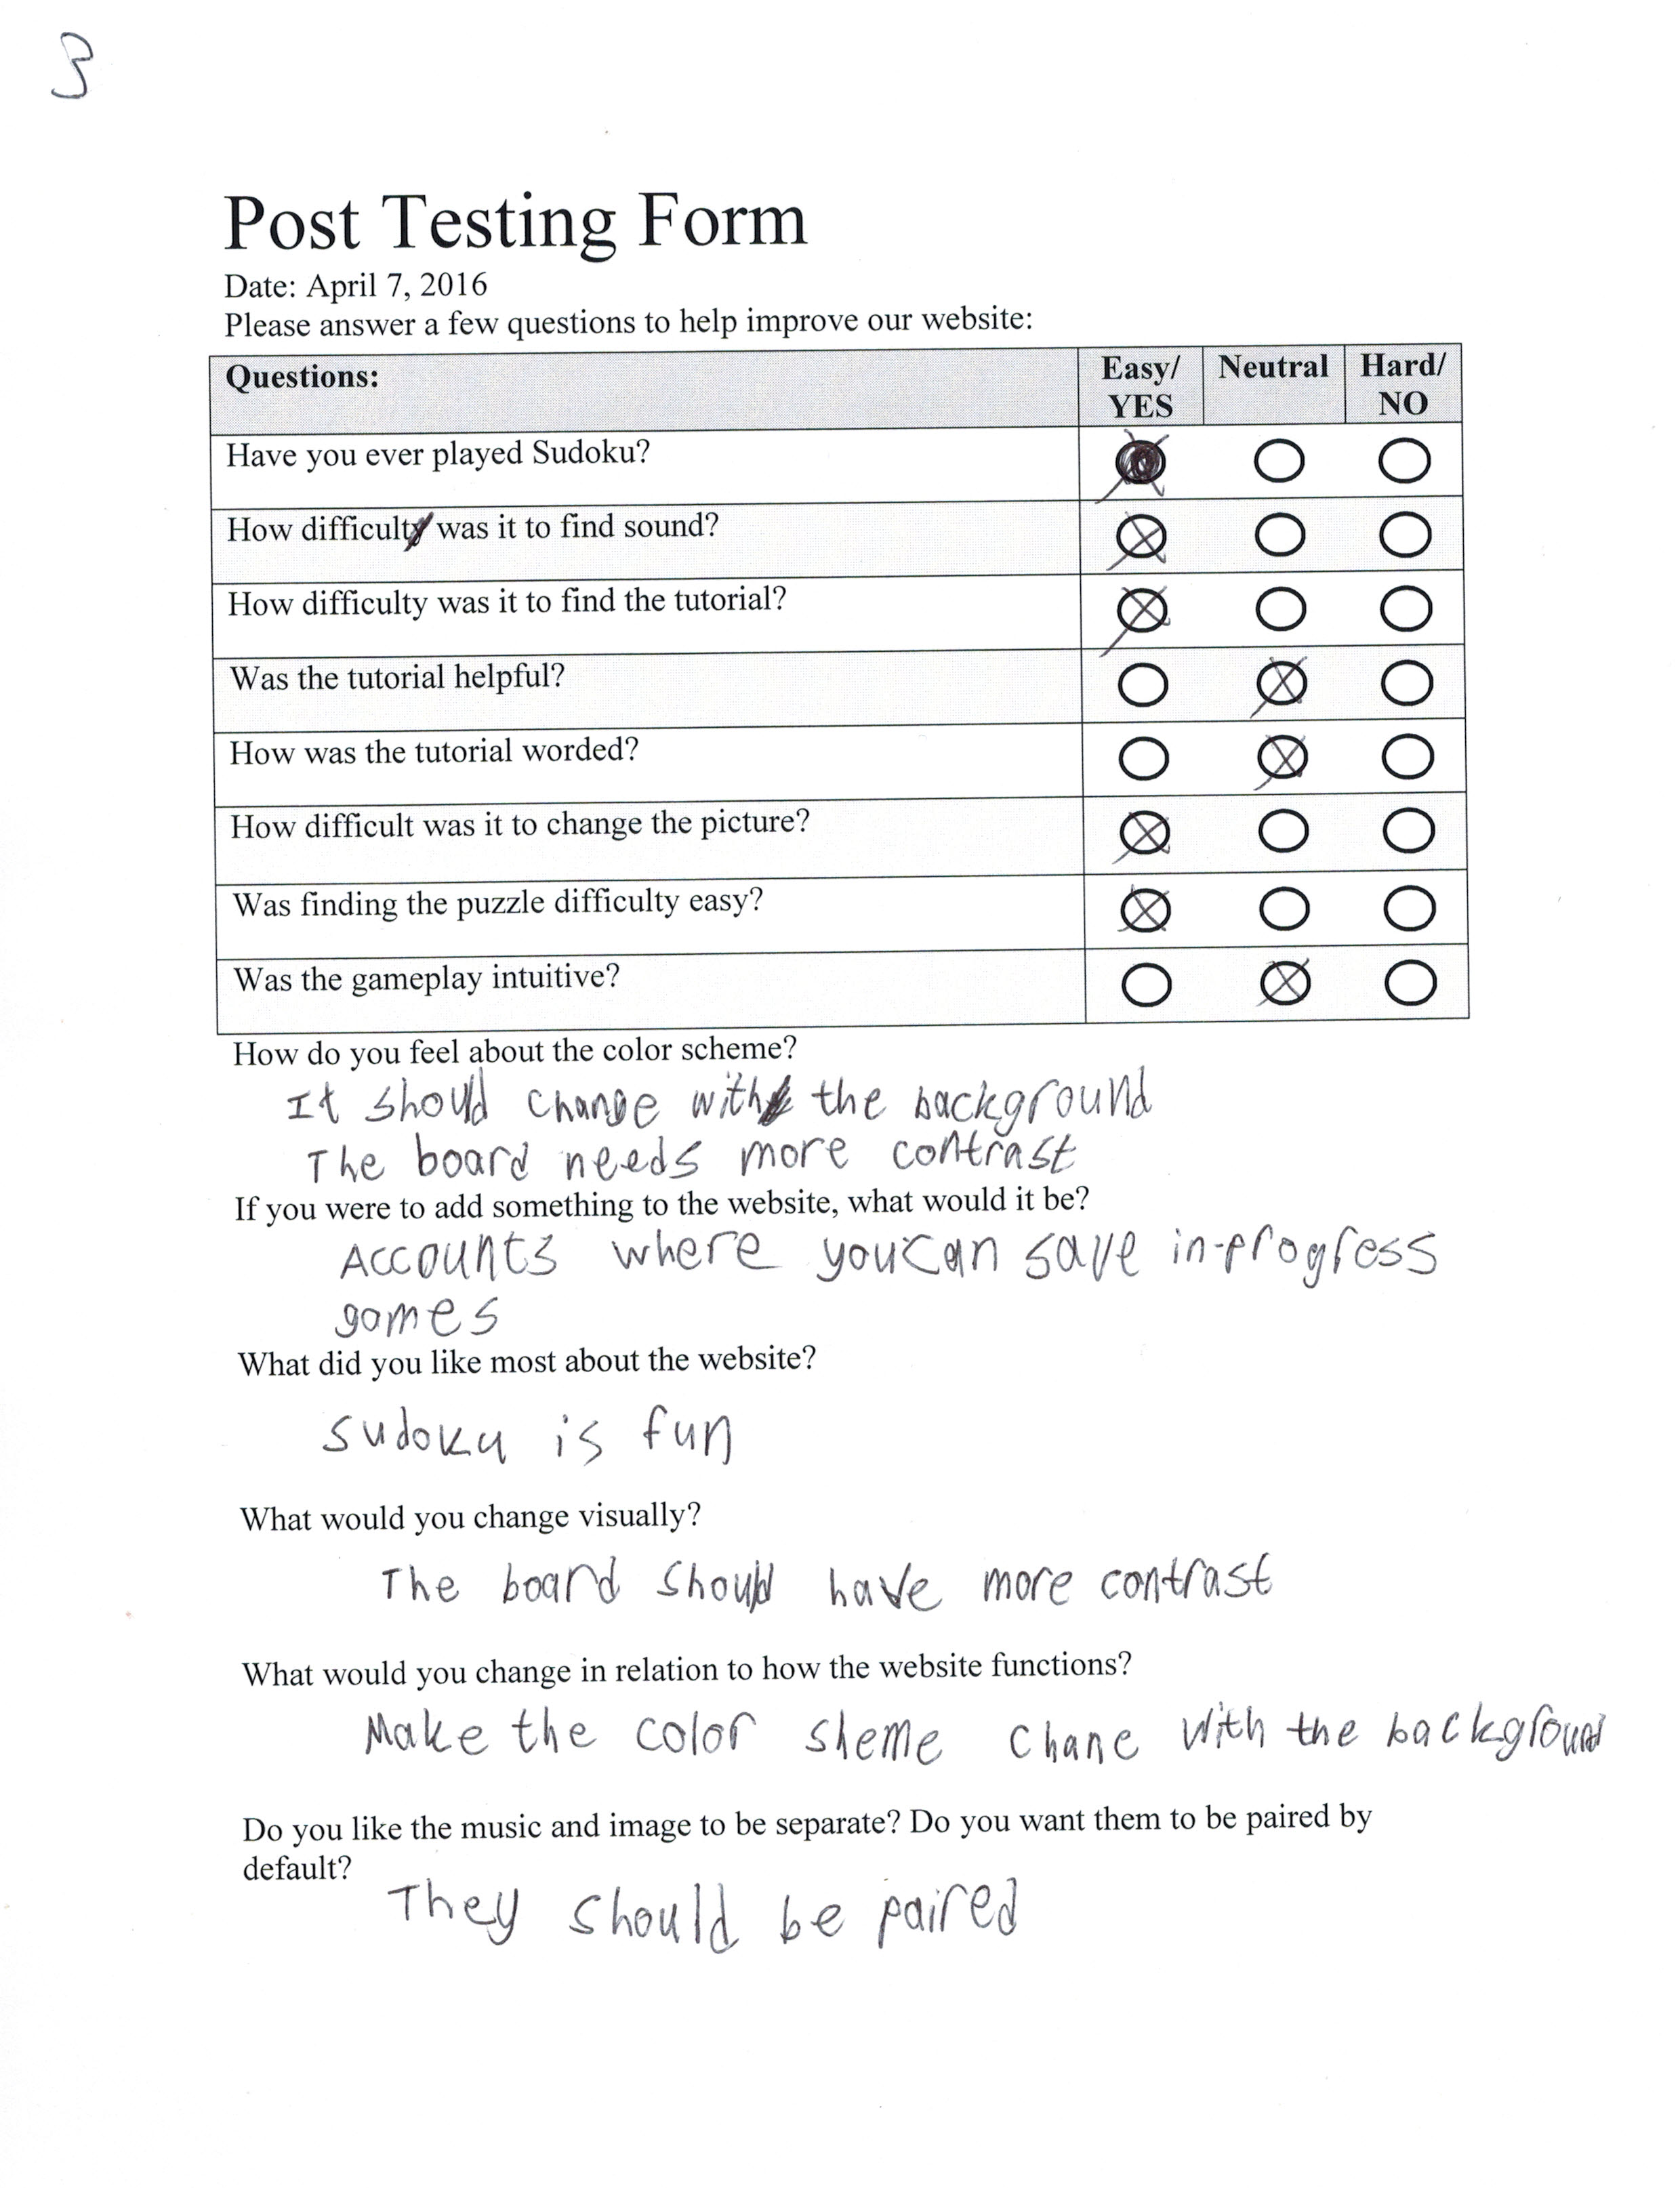 3
Post Testing Form
Date: April 7, 2016
Please answer a few questions to help improve our website:
Questions: Easy/ YES Neutral Hard/ NO
Have you ever played Sudoku?
How difficult was it to find sound?
How difficulty was it to find the tutorial?
Was the tutorial helpful?
How was the tutorial worded?
How difficult was it to change the picture?
Was finding the puzzle difficulty easy?
Was the gameplay intuitive?
How do you feel about the color scheme?
It should change with the background
The board needs more contrast
If you were to add something to the website, what would it be?
Accounts where you can save in-progress
games
What did you like most about the website?
Sudoku is fun
What would you change visually?
The board should have more contrast
What would you change in relation to how the website functions?
Make the color sheme chane with the background
Do you like the music and image to be separate? Do you want them to be paired by
default?
They should be paired